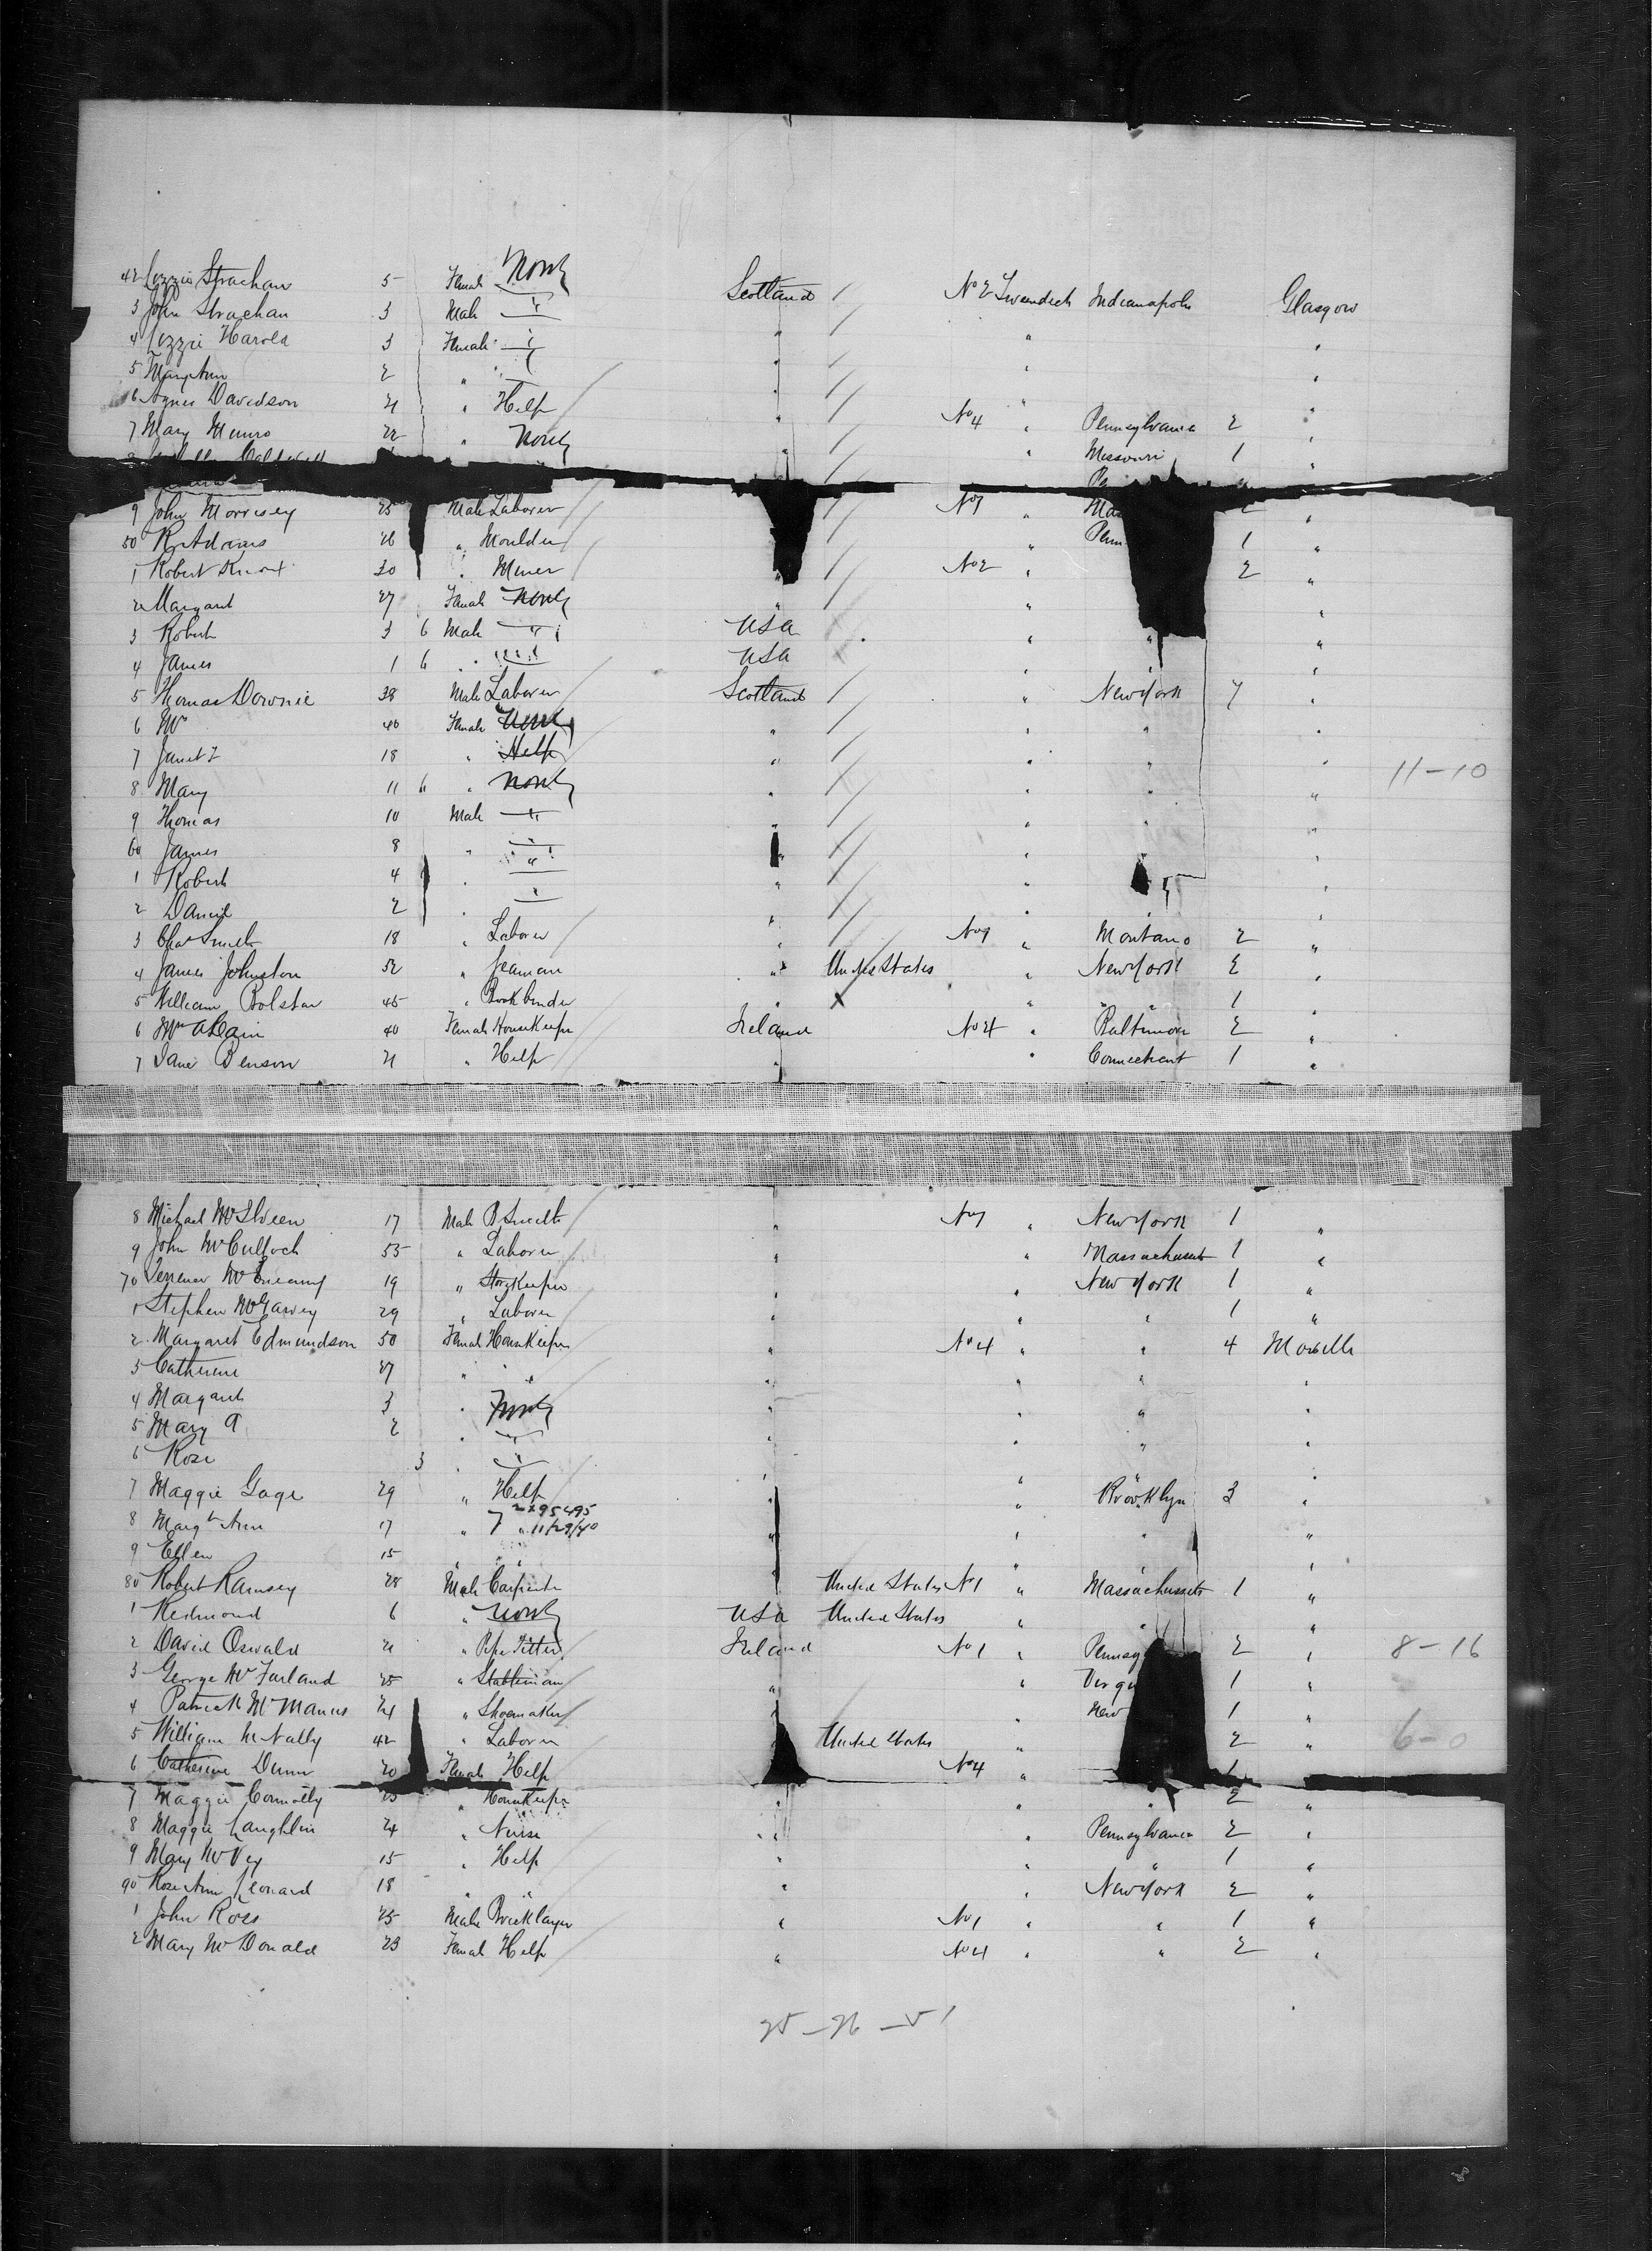 42 Lizzie Strachan 5 Female None Scotland / No 2 Swendish Indianapolis Glasgow
3 John Strachan 3 Male " " / " "
4 Lizzie Harold 3 Female " " / " "
5 Mary Ann 2 " " " / " "
6 Agnes Davidson 21 " Help " / No 4 " Pennsylvania 2 "
7 Mary Munro 22 " None " / Missouri 1 "
Caldwell
9 John Morrisey 25 Male Laborer / No 1 " Mas "
50 R Adams 26 " Moulder / " Penn 1 "
1 Robert Knox 30 " Miner " / No 2 " 2 "
2 Margaret 27 Female None " / " "
3 Robert 3 6 Male " USA " " "
4 James 1 6 " " USA " "
5 Thomas Downie 38 Male Laborer Scotland / " New York 7 "
6 Mrs 40 Female None " / " " "
7 Janet 18 " Help " / " " " 11-10
8 Mary 11 6 " None " / " " "
9 Thomas 10 Male " " / " " "
60 James 8 " " " / " "
1 Robert 4 " " " / " "
2 Daniel 2 " " " / " " "
3 Chas Smith 18 " Laborer " / No 1 " Montano 2 "
4 James Johnston 52 " Seaman " United States " New York 2 "
5 William Bolster 45 " Bookbinder " X " " 1 "
6 Mrs 40 Female HouseKeeper Ireland No 4 " Baltimore 2 "
7 Jane Benson 21 " Help " " Connecticut 1 "
8 Michael 17 Male B Smith " No 1 " New York 1 "
9 John McCulloch 55 " Laborer " " Massachusett 1 "
70 19 " StoreKeeper " " New York 1 "
1 Stephen McGarvey 29 " Laborer " " " 1 "
2 Margaret Edmundson 50 Female HouseKeeper " No 4 " " 4 Moville
3 Catherine 27 " " " " " "
4 Margaret 3 " None " " " "
5 Mary A 2 " " " " " "
6 Rose 3 " " " " " "
7 Maggie Gage 29 " Help " " Brooklyn 3 "
2x95495
8 Margt Ann 17 " " 11/29/40 " " " "
9 Ellen 15 " " " " "
80 Robert Ramsey 28 Male Carpenter " United States No 1 " Massachusetts 1 "
1 Redmond 6 " None USA United States " " "
2 David Oswald 21 " Pipe Fitter Ireland No 1 " Pennsy 2 " 8-16
3 George McFarland 25 " Stableman " " Virgi 1 "
4 Patrick McManus 24 " Shoemaker " " New 1 "
5 William McNally 42 " Laborer United States " 2 " 6-0
6 Catherine Dunn 20 Female Help No 4 " 1
7 Maggie Connolly 23 " HouseKeeper " " " 2 "
8 Maggie Laughlin 24 " Nurse " " Pennsylvania 2 "
9 Mary McVey 15 " Help " " " 1 "
90 Rose Ann Leonard 18 " " " " New York 2 "
1 John Ross 25 Male Bricklayer " No 1 " " 1 "
2 Mary McDonald 23 Female Help " No 4 " " 2 "
25-26-51